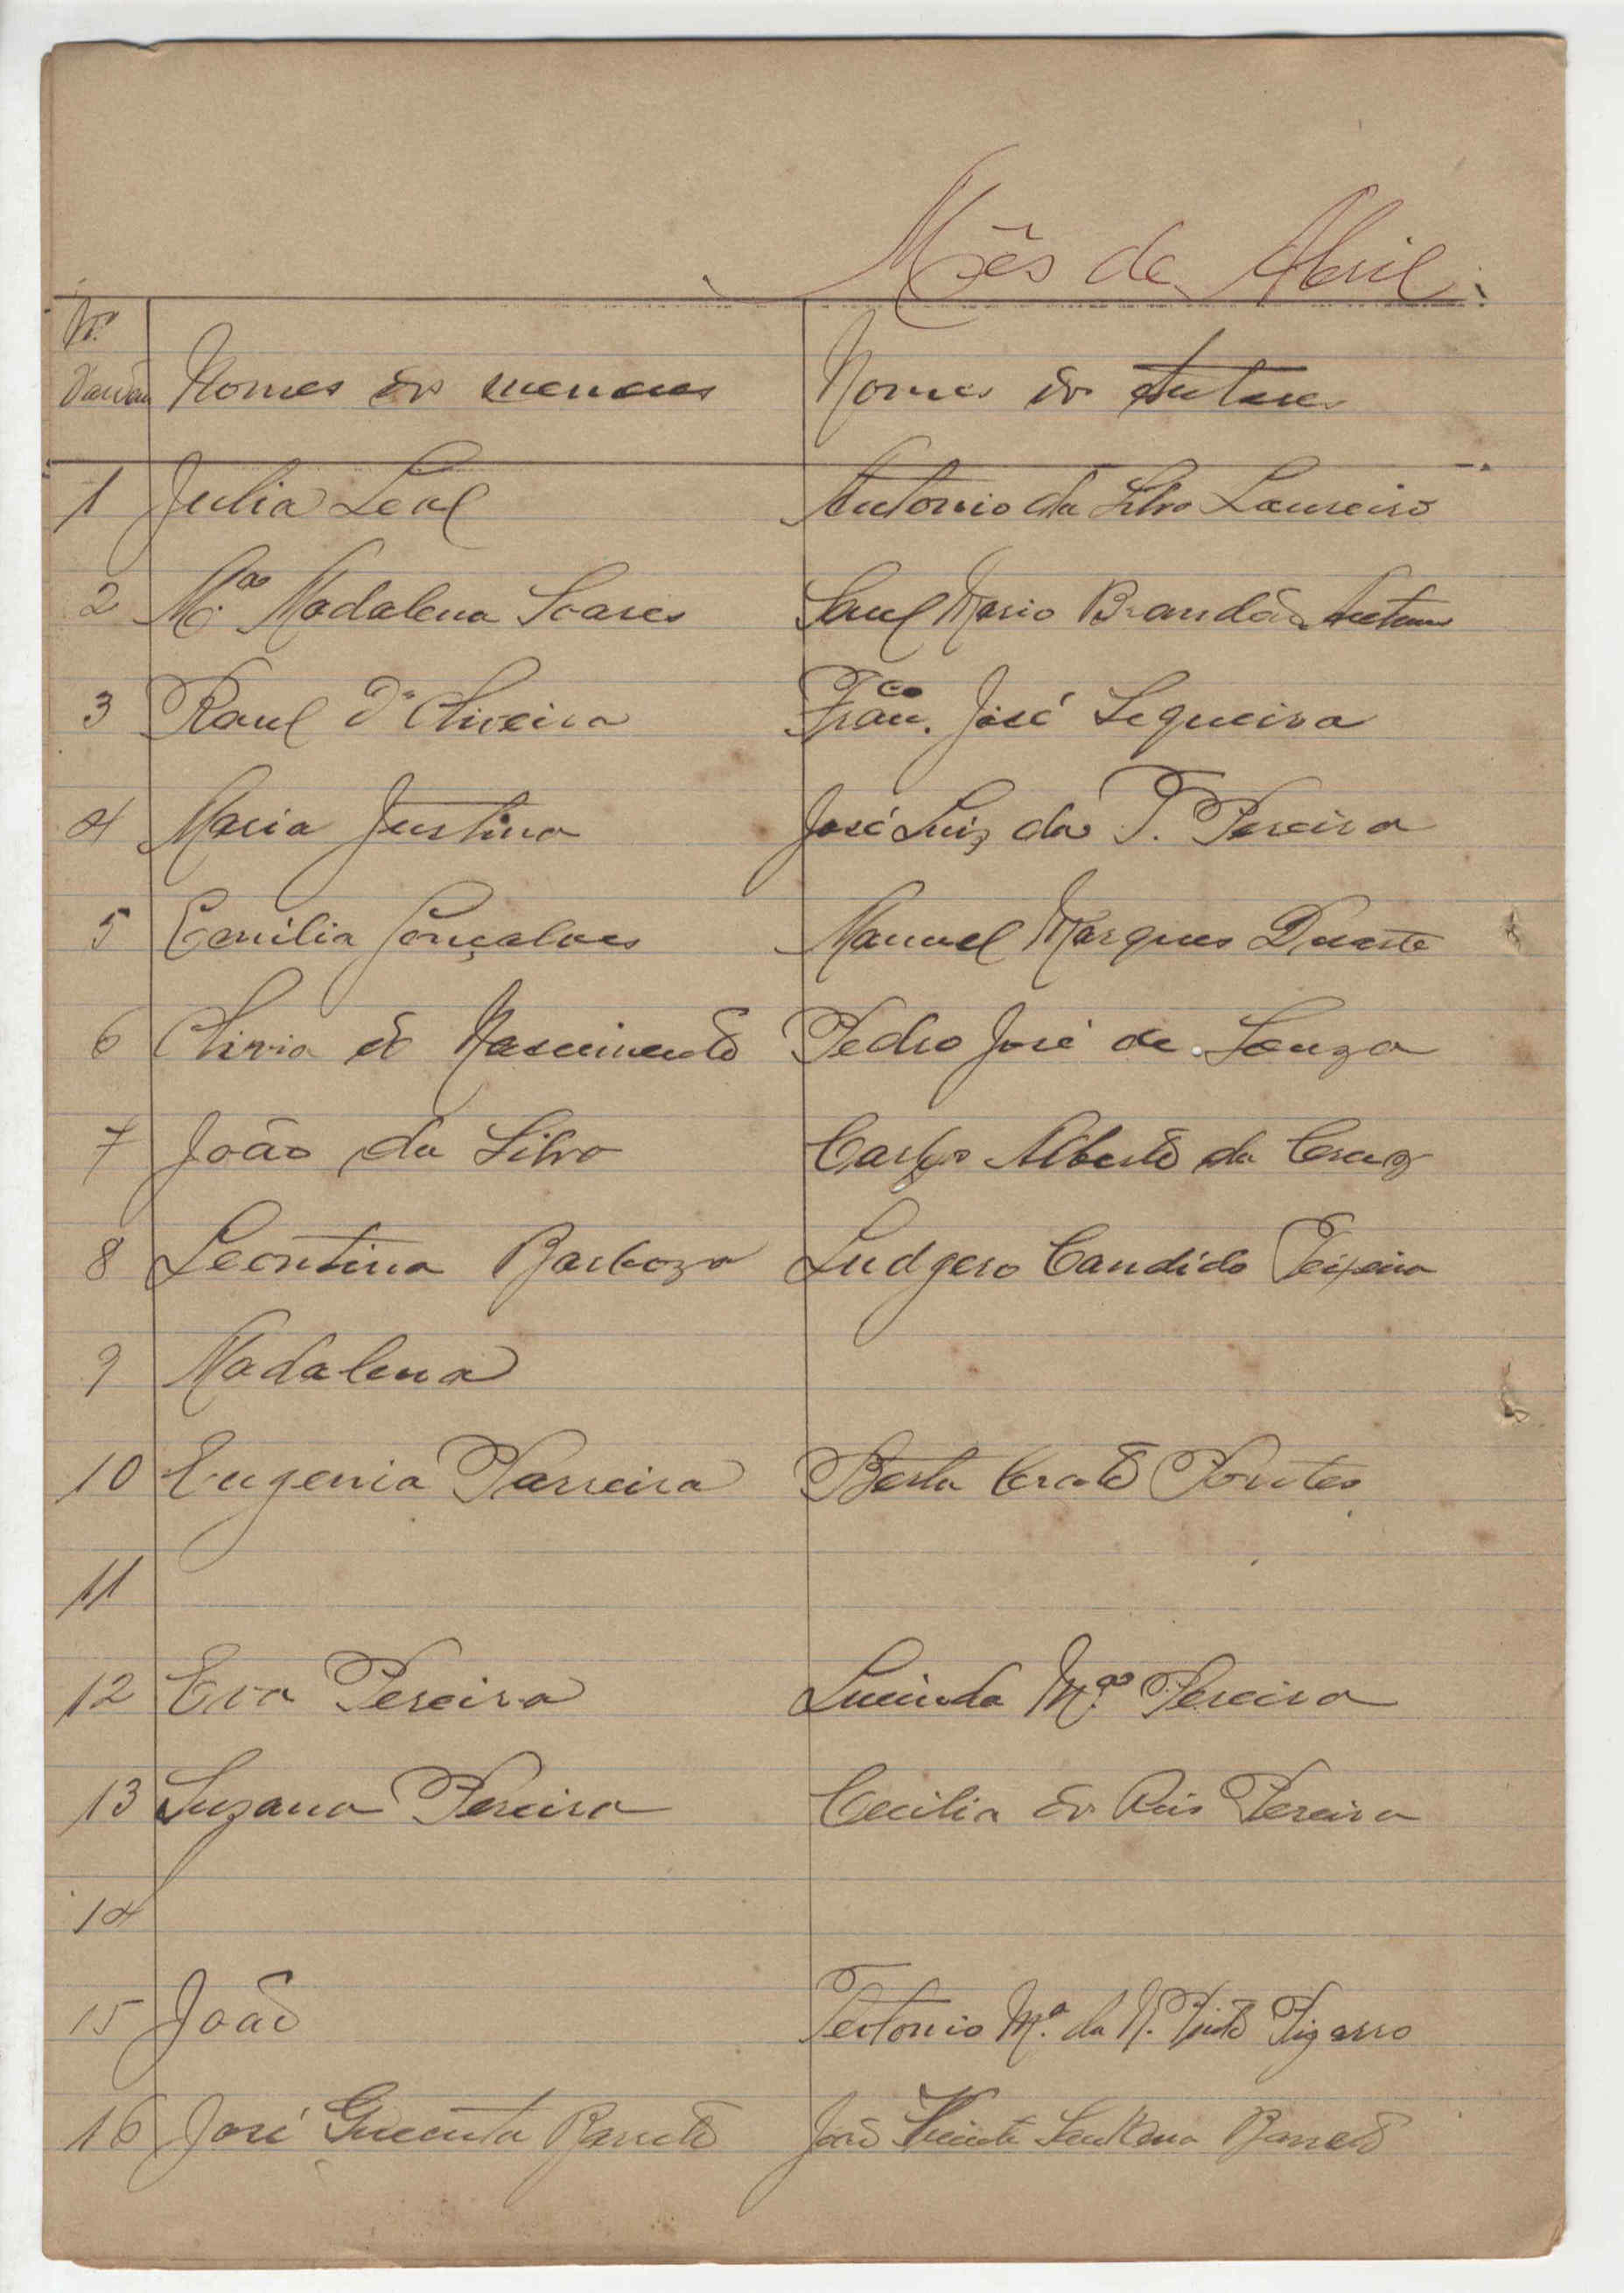 Mês de Abril
Nº
Nomes dos menores
Nomes dos tutores
1 Julia Leal Antonio da Silva Loureiro
2 M.ª Madalena Soares Saul Mario Brandão Antunes
3 Raul d'Oliveira Fran.co José Sequeira
4 Maria Justina José Luiz da T. Pereira
5 Emilia Gonçalves Manuel Marques Duarte
6 Olivia do Nascimento Pedro José de Souza
7 João da Silva Carlos Alberto da Cruz
8 Leontina Barboza Ludgero Candido Teixeira
9 Madalena
10 Eugenia Parreira Berta Cerato Pontes
11
12 Eva Pereira Lucinda M.ª Pereira
13 Suzana Pereira Cecilia dos Reis Pereira
14
15 João Teotonio M.ª da N. Pinto Pizarro
16 José Barreto João Vicente Sant'Anna Barreto